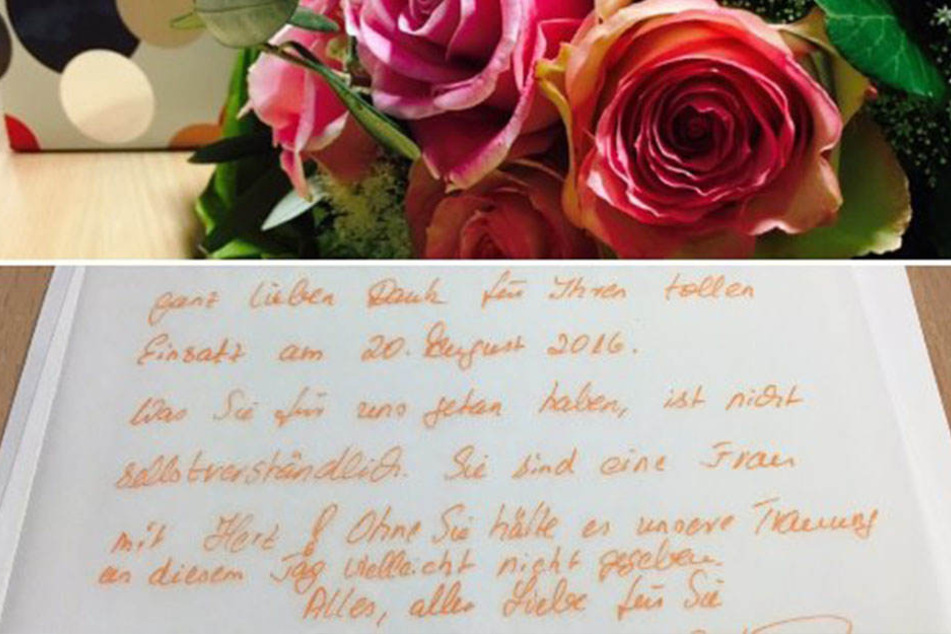 ganz lieben Dank für Ihren tollen
Einsatz am 20. August 2016.
Was Sie für uns getan haben, ist nicht
selbstverständlich. Sie sind eine Frau
mit Herz! Ohne Sie hätte es unsere Trauung
an diesem Tag vielleicht nicht gegeben.
Alles, alles Liebe für Sie